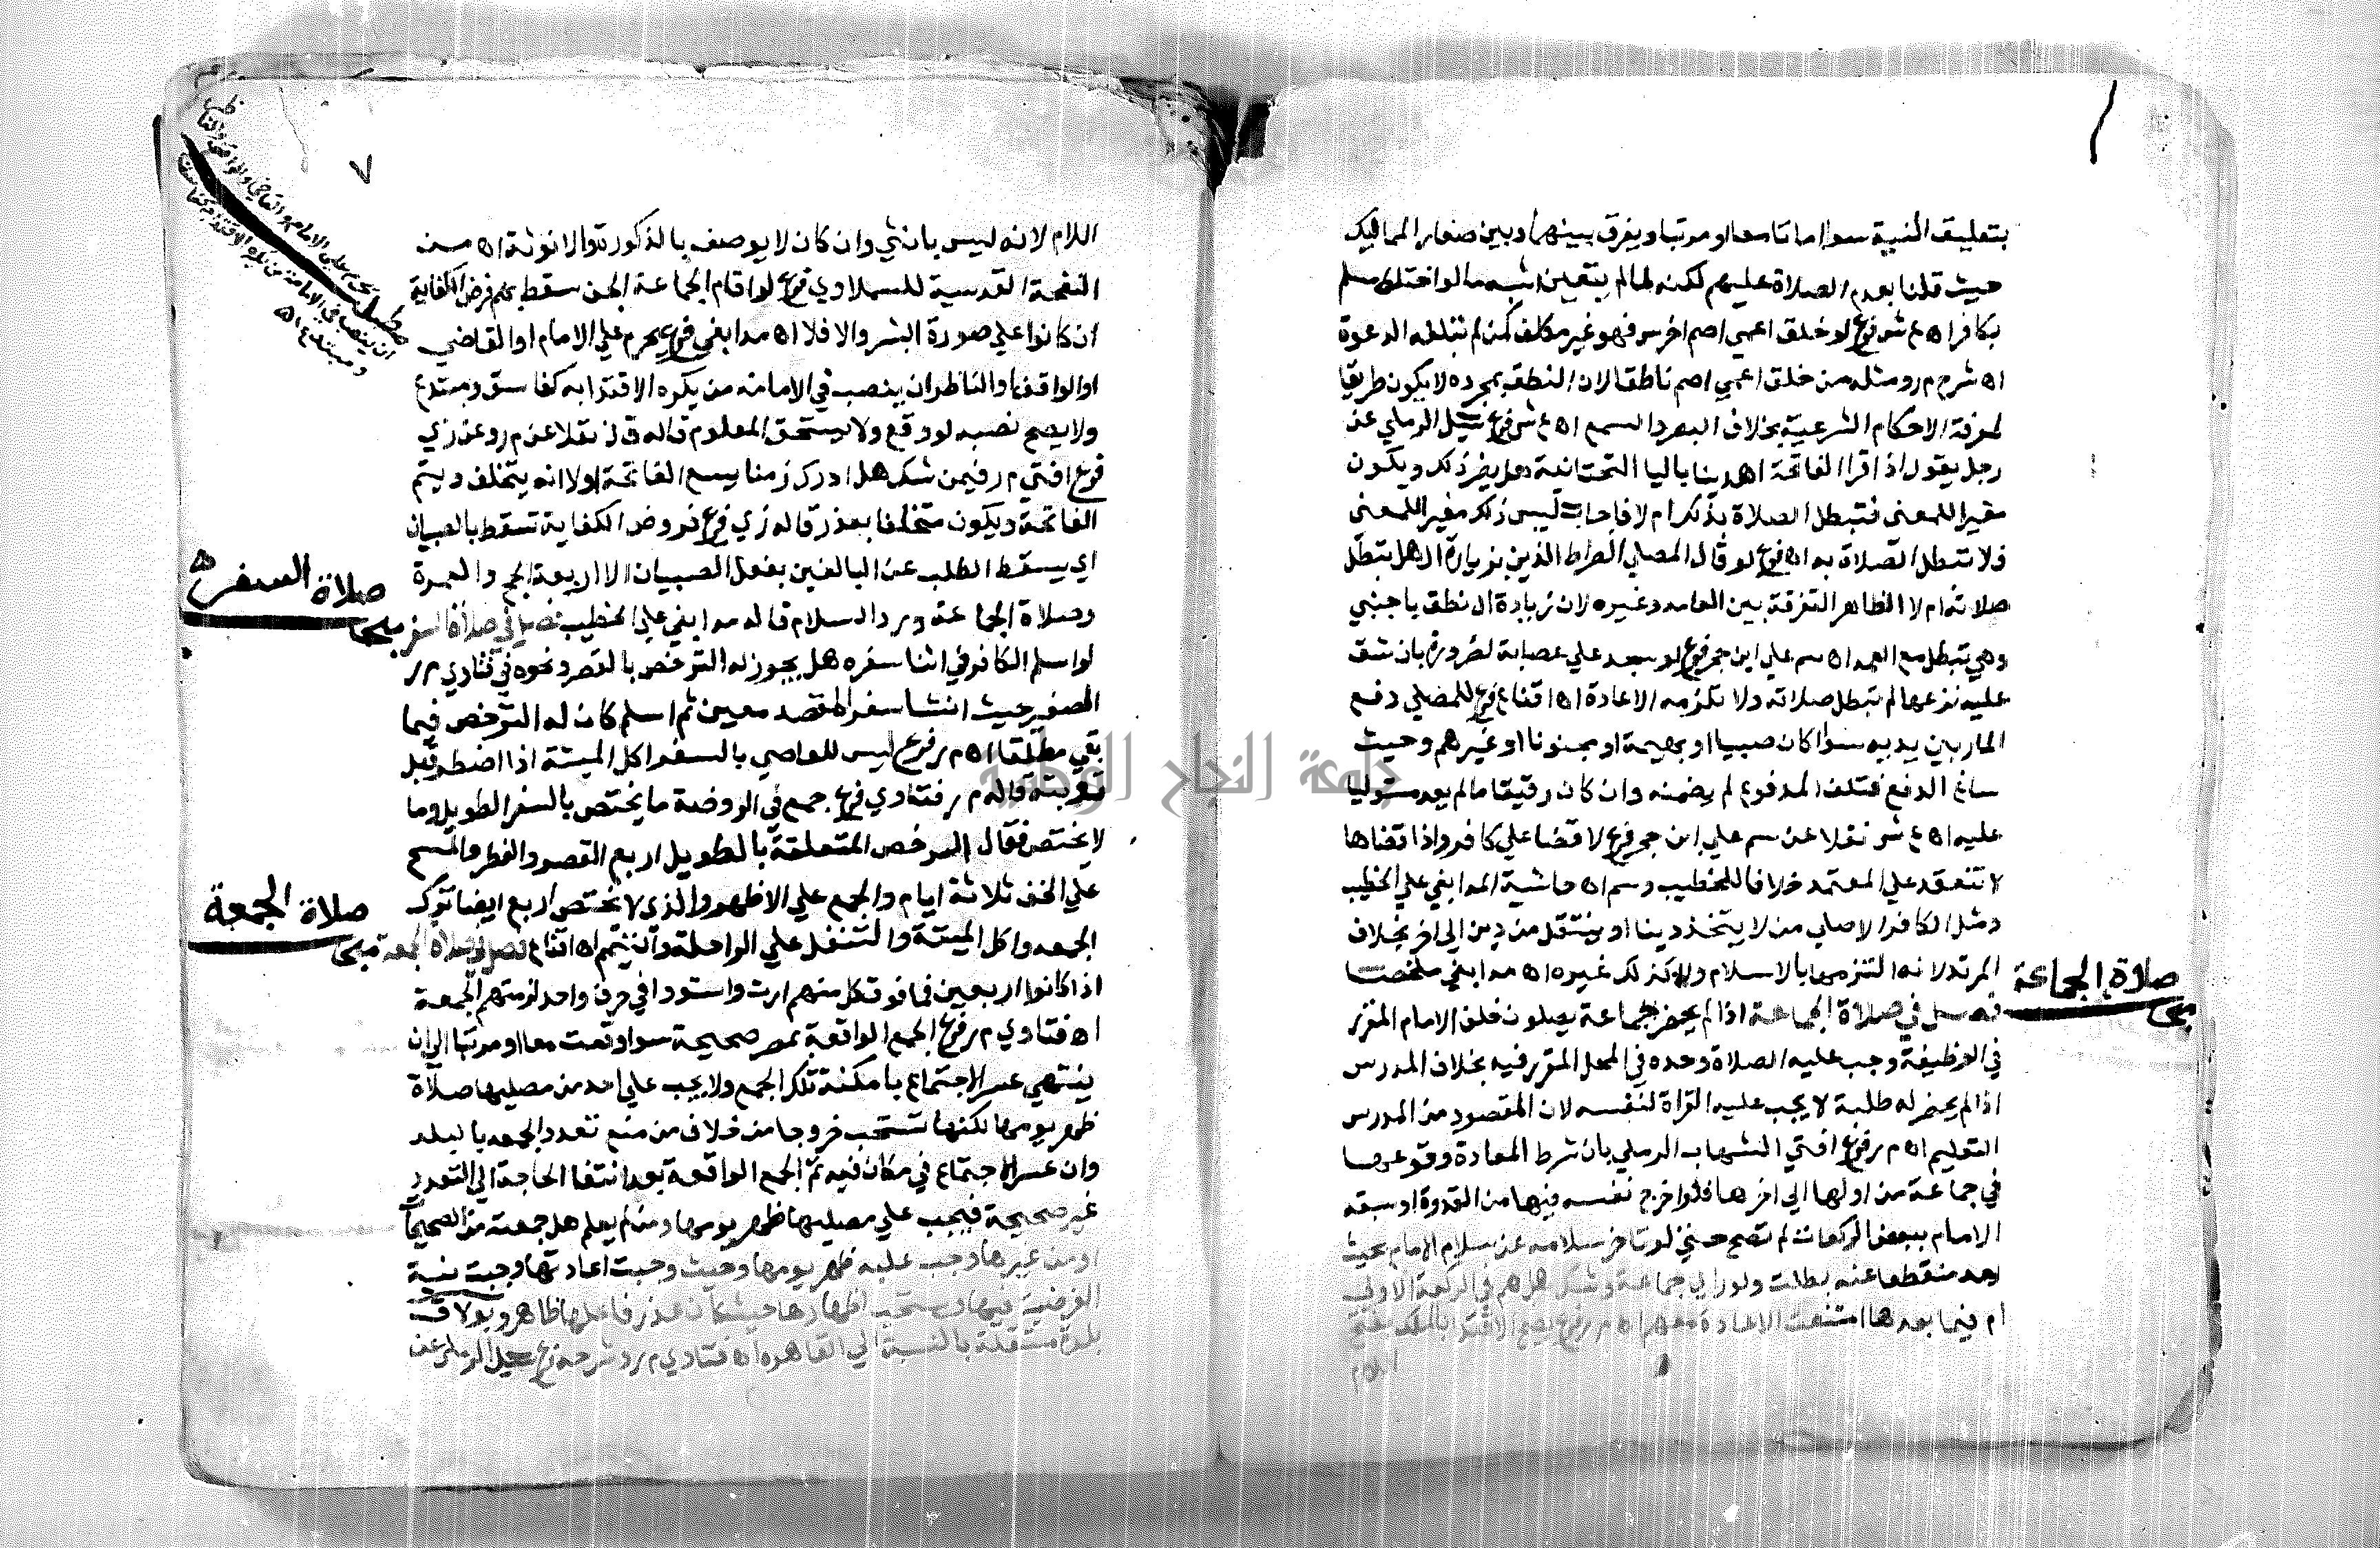 بتعليق النية سوا ماتا معا او مرتبا ويفرق بينهما وبين صغار المماليك
حيث قلنا بعدم الصلاة عليهم لكنه لما لم يتعين اشبه ما لو اختلط مسلم
بكافر اه ع ش فرع لو خلق اعمي اصم اخرس فهو غير مكلف كمن لم تبلغه الدعوة
اه شرح م ر ومثله من خلق اعمي اصم ناطقا لان النطق بمجرده لا يكون طريقا
لمعرفة الاحكام الشرعية بخلاف البصر والسمع اه ع ش فرع سيل الرملي عن
رجل يقول اذا قرا الفاتحة اهدينا باليا التحتانية هل يضر ذلك ويكون
مغيرا للمعني فتبطل الصلاة بذلك ام لا فاجاب ليس ذلك مغيرا للمعني
فلا تبطل الصلاة به اه فرع لو قال المصلي الصراط الذين بزيارة ال هل تبطل
صلاته ام لا الظاهر التفرقة بين العامد وغيره لان زيادة ال نطق باجنبي
وهي تبطل مع العمد اه سم علي ابن حجر فرع لو سجد علي عصابة لضرورة بان شق
عليه نزعها لم تبطل صلاته ولا تلزمه الاعادة اه اقناع فرع للمصلي دفع
المار بين يديه سوا كان صبيا او بهيمة او مجنونا او غيرهم وحيث
ساغ الدفع فتلف المدفوع لم يضمنه وان كان رقيقا ما لم يعد مستوليا
عليه اه ع ش نقلا عن سم علي ابن حجر فرع لا قضا علي كافر واذا قضاها
لا تنعقد علي المعتمد خلافا للخطيب وسم اه حاشية المدابغي علي الخطيب
ومثل الكافر الاصلي من لا يتخذ دينا او ينتقل من دين الي اخر بخلاف
المرتد لانه التزمها بالاسلام ولا كذلك غيره اه مدابغي ملخصا
صلاة الجماعة
فصل في صلاة الجماعة اذا لم يحضر جماعة يصلون خلف الامام المقرر
في الوظيفة وجب عليه الصلاة وحده في المحل المقرر فيه بخلاف المدرس
اذا لم يحضر له طلبة لا يجب عليه القراة لنفسه لان المقصود من المدرس
التعليم اه م ر فرع افتي الشهاب الرملي بان شرط المعادة وقوعها
في جماعة من اولها الي اخرها فلو اخرج نفسه فيها من القدوة او سبقه
الامام ببعض الركعات لم تصح حتي لو تاخر سلامه عن سلام الامام بحيث
يعد منقطعا عنه بطلت ولو راي جماعة وشك هل هم في الركعة الاولي
ام فيما بعدها امتنعت الاعادة معهم اه م ر فرع يصح الاقتدا بالملك
٧
اللام لانه ليس بانثي وان كان لا يوصف بالذكورة والانوثة اه من
النفحة القدسية للسملاوي فرع لو اقام الجماعة الجن سقط بهم فرض الكفاية
ان كانوا علي صورة البشر والا فلا اه مدابغي فرع يحرم علي الامام او القاضي
او الواقف او الناظر ان ينصب في الامامة من يكره الاقتدا به كفاسق ومبتدع
ولا يصح نصبه لو وقع ولا يستحق المعلوم قاله ق ل نقلا عن م ر وعن زي
فرع افتي م ر فيمن شك هل ادرك زمنا يسع الفاتحة اولا انه يتخلف ويتم
الفاتحة ويكون متخلفا بعذر قاله زي فرع فروض الكفاية تسقط بالصبيان
اي يسقط الطلب عن البالغين بفعل الصبيان الا اربعة الحج والعمرة
صلاة السفر
وصلاة الجماعة ورد السلام قاله مدابغي علي الخطيب فصل في صلاة السفر
لو اسلم الكافر في اثنا سفره هل يجوز له الترخص بالقصر ونحوه في فتاوي م ر
الصغير حيث انشا سفرا لمقصد معين ثم اسلم كان له الترخص فيما
بقي مطلقا اه م ر فرع ليس للعاصي بالسفر اكل الميتة اذا اضطر قبل
توبته قاله م ر فتاوي فرع جمع في الروضة ما يختص بالسفر الطويل وما
لا يختص فقال الرخص المتعلقة بالطويل اربع القصر والفطر والمسح
علي الخف ثلاثة ايام والجمع علي الاظهر والذي لا يختص اربع ايضا ترك
صلاة الجمعة
الجمعه واكل الميتة والتنفل علي الراحلة والتيمم اه اقناع فصل في صلاة الجمعة
اذا كانوا اربعين في
اه فتاوي م ر فرع الجمع الواقعة بمصر صحيحة سوا وقعت معا او مرتبا الي ان
ينتهي عسر الاجتماع بامكنة تلك الجمع ولا يجب علي احد من مصليها صلاة
ظهر يومها لكنها تستحب خروجا من خلاف من منع تعدد الجمعه بالبلد
وان عسر الاجتماع في مكان فيه ثم الجمع الواقعة بعد انتفا الحاجة الي التعدد
غير صحيحة فيجب علي مصليها ظهر يومها ومن لم يعلم هل جمعته من الصحيحات
او من غيرها وجب عليه ظهر يومها وحيث وجبت اعادتها وجبت نية
الفرضية فيها ويستحب اظهارها حيث كان عذر فاعلها ظاهر وبولاق
بلدة مستقلة بالنسبة الي القاهرة اه فتاوي م ر وشرحه فرع سيل الرملي عن
جامعة النجاح الوطنية